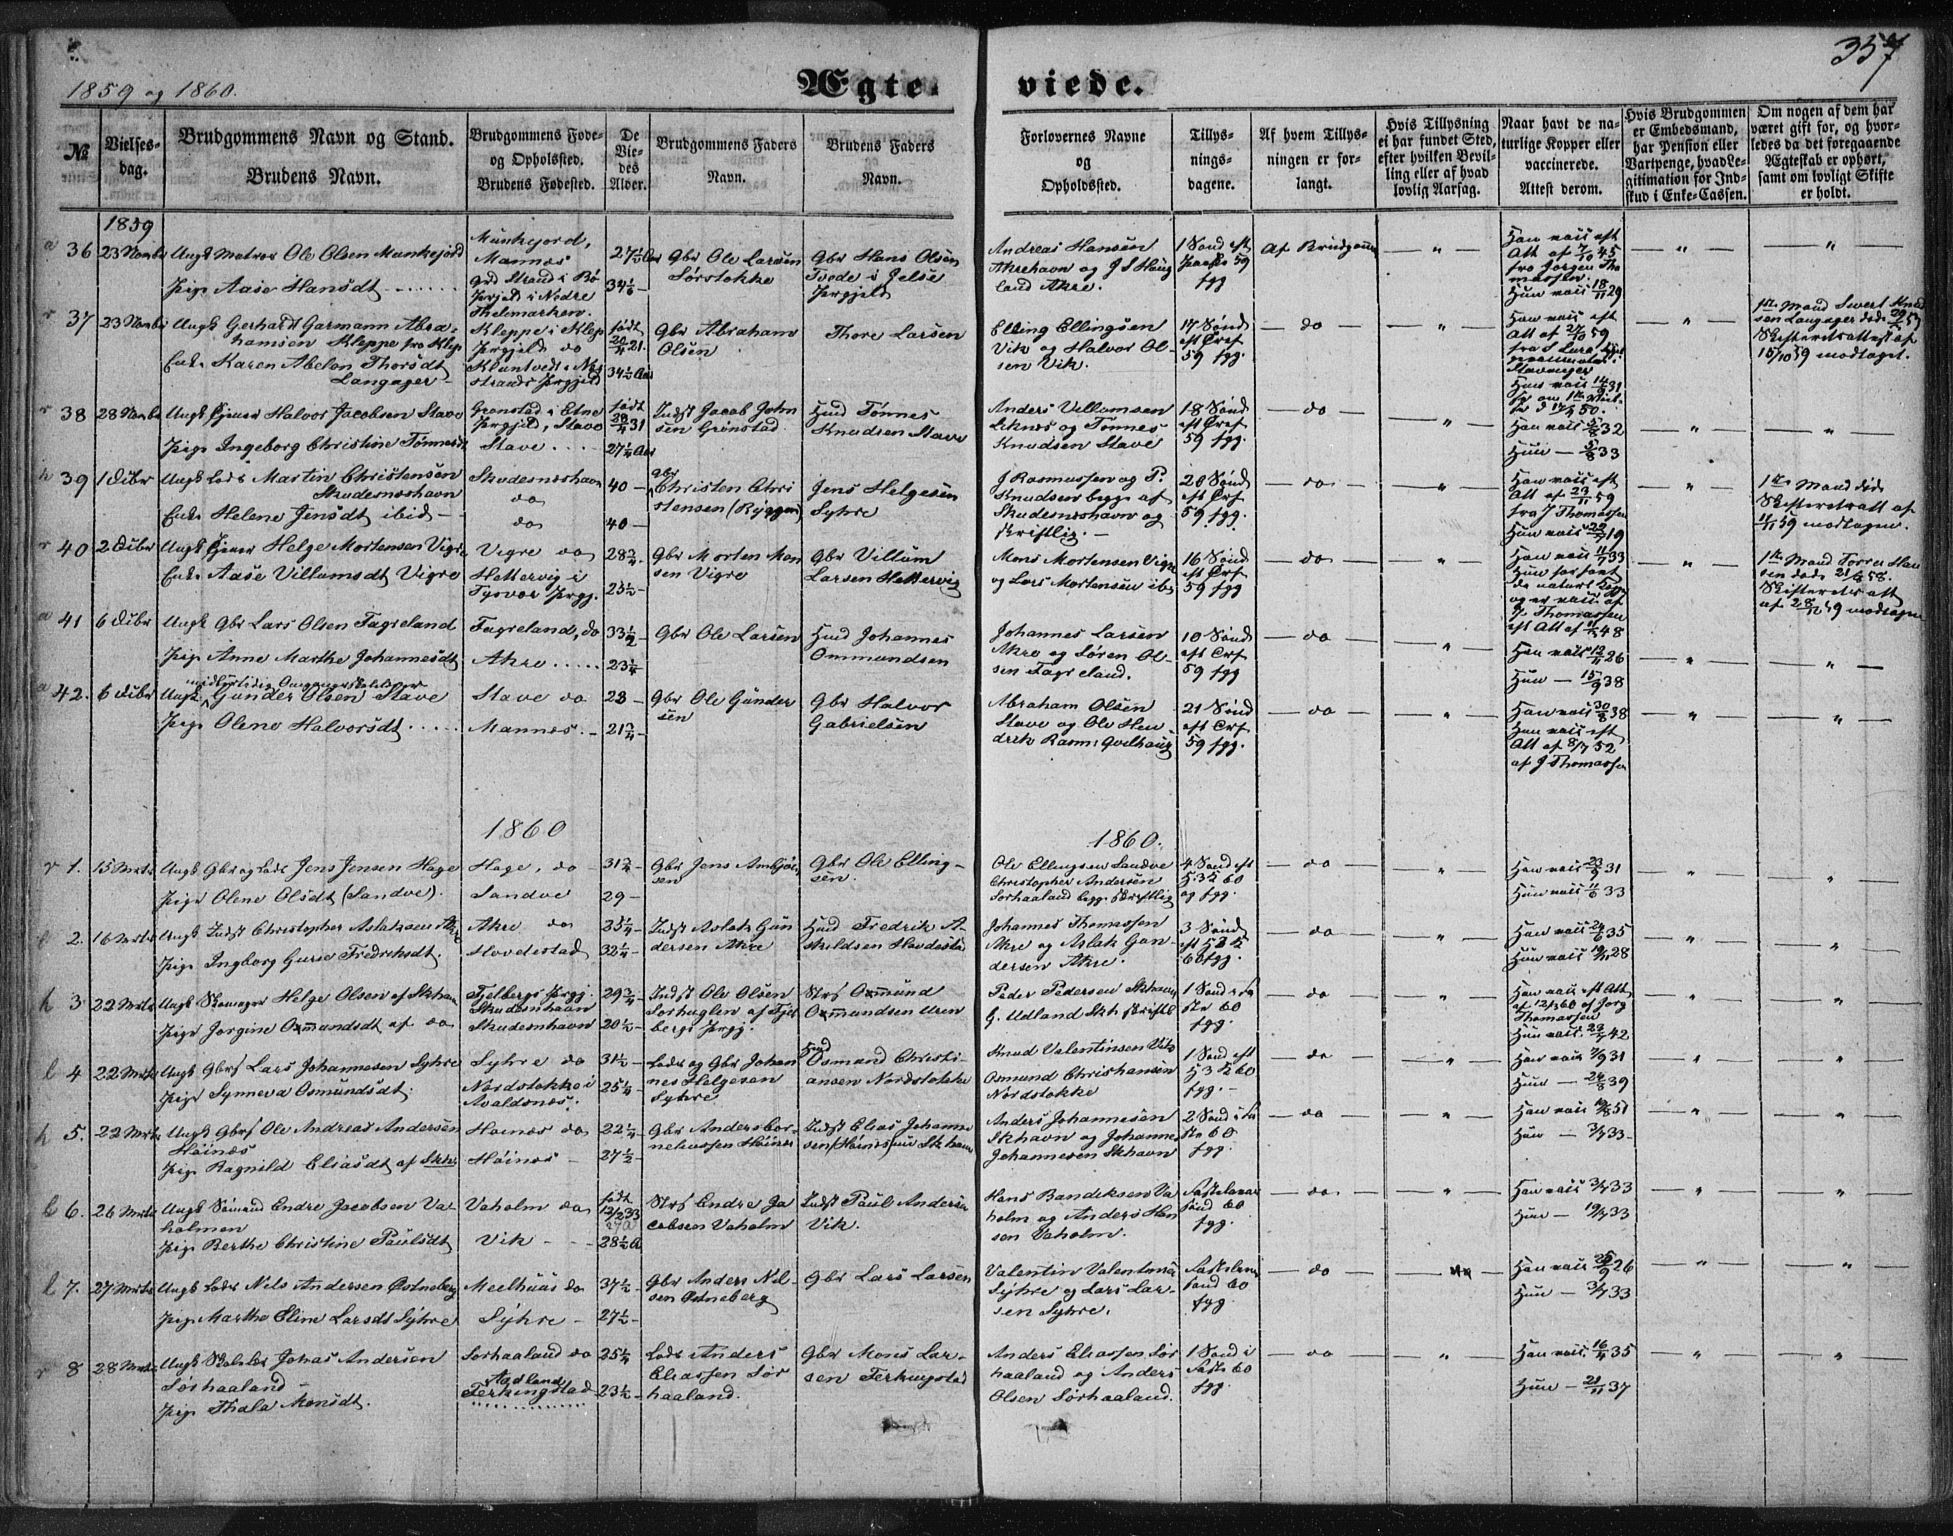 357
1859 og 1860.
Ægte viede.
№
Vielses-
dag.
Brudgommens Navn og Stand.
Brudens Navn.
Brudgommens Føde-
og Opholdssted.
Brudens Fødested.
De
Vie-
des
Alder.
Brudgommens Faders
Navn.
Brudens Faders
Navn.
Forlovernes Navne
og
Opholdssted.
Tillys-
nings-
dagene.
Af hvem Tillys-
ningen er for-
langt.
Hvis Tillysning
ei har fundet Sted,
efter hvilken Bevil-
ling eller af hvad
lovlig Aarsag.
Naar havt de na-
turlige Kopper eller
vaccinerede.
Attest derom.
Hvis Brudgommen
er Embedsmand,
har Pension eller
Vartpenge, hvad Le-
gitimation for Ind-
skud i Enke-Cassen.
Om nogen af dem har
været gift før, og hvor-
ledes da det foregaaende
Ægteskab er ophørt,
samt om lovligt Skifte
er holdt.
1859
a 36 23 Novbr Ungk Matros Ole Olsen Munkejord
Pige Aase Hansdt
Munkejord,
Mannes
Grd Strand i Bø
Prgjeld i Nedre
Thelemarken.
34 1/6
Gbr Ole Larsen
Sørstokke
Gbr Hans Olsen
Tvede i Jelse
Prgjeld
Andreas Hansen
Akrehavn og J S Haug
land Akre.
1 Sønd eft
Paaske 59
fgg
Af Brudgom
Han vaii eft
Att af 7/10 45
fra Jørgen Tho
massen
Hun vaii 18/11 29
r 37 23 Novbr Ungk Gerhardt Garmann Abra-
hamsen Kleppe fra Klep
Enke Karen Abelon Thorsdt
Langager
Kleppe i Klep
Prgjeld do
Prgjeld
født
20/4 21.
34 1/2 Aar
Gbr Abraham
Olsen
Thore Larsen
Elling Ellingsen
Vik og Halvor Ol-
sen Vik.
17 Sønd
eft Tref
59 fgg.
do
Han vaii eft
Att af 27/10 59
Stavanger
Hun vaii 14/9 31
1ste Mand Sivert Knud
sen Langager død
Skifteretsattest af
15/10 59 modtaget.
r 38 28 Novbr Ungk Tjener Halvor Jacobsen Stave
Pige Ingeborg Christine Tønnesdt
Grønstad i Etne
Prgjeld, Stave
Stave
født
28/4 31
27 1/4 Aar
Indst Jacob John
sen Grønstad.
Hmd Tønnes
Knudsen Stave
Anders Villumsen
Liknes og Tønnes
Knudsen Stave
18 Sønd
eft Tref
59 fgg.
do
Han vaii 5/8 32
Hun — 5/8 33
h 39 1 Decbr Ungk Lods Martin Christensen
Skudesneshavn
Enke Helene Jensdt ibid
Skudesneshavn
do
do
40
40
Gbr
Christen Chri
stensen (Ryggen)
Jens Helgesen
Syhre
J Rasmussen og P.
Knudsen begge af
Skudesneshavn og
skriftlig.
20 Sønd
eft Tref
59 fgg.
do
Han vaii eft
Att af 23/11 59
fra J Thomassen
1ste Mand død
Skifteretsatt af
11/11 59 modtagen.
r 40 2 Decbr Ungk Tjener Helge Mortensen Vigre
Enke Aase Villumsdt Vigre
Vigre do
Hettervig i
Tysvær Prgj.
28 3/4
25 1/2
Gbr Morten Mon
sen Vigre
Gbr Villum
Larsen Hettervig
Mons Mortensen Vigre
og Lars Mortensen ibd
16 Sønd
eft Tref
59 fgg
do
Han vaii 11/9 33
J. Thomassen
eft Att af
1ste Mand Torres Han
sen døde 21/8 58.
Skifteretsatt
af 28/11 59 modtagen
a 41 6 Decbr Ungk Gbr Lars Olsen Fagreland
Pige Anne Marthe Johannesdt
Fagreland, do
Akre
33 1/2
23 1/4
Gbr Ole Larsen
Hmd Johannes
Ommundsen
Johannes Larsen
Akre og Søren Ol-
sen Fagreland.
10 Sønd
eft Tref
59 fgg
do
Han vaii 12/11 26
Hun — 15/9 38
a 42. 6 Decbr Ungk midlertidig Omgangsskoleholder
Gunder Olsen Stave
Pige Olene Halvorsdt
Stave do
Mannes.
23
21 3/4
Gbr Ole Gunder
sen
Gbr Halvor
Gabrielsen
Abraham Olsen
Stave og Ole Hen
drik Rasm: Qvelhaug
21 Sønd
eft Tref
59 fgg.
do
Han vaii 30/8 38
Hun vaii eft
Att af 8/7 52
af J Thomassen
1860
1860.
r 1. 15 Mrts Ungk Gbr og Lods Jens Jensen Hage
Pige Olene Olsdt (Sandve).
Hage, do
Sandve
31 3/4
29
Gbr Jens Ambjør
sen
Gbr Ole Elling-
sen.
Ole Ellingsen Sandve
Christopher Andersen
Sørhaaland begge skriftlig
4 Sønd eft
H3K 60
og fgg.
do
Han vaii 23/9 31
Hun vaii 11/6 33
2. 16 Mrts Ungk Indst Christopher Aslaksen Akre
Pige Ingborg Gurie Fredriksdt.
Akre do
Hovdestad
25 1/4
32 1/4
Indst Aslak Gun
dersen Akre
Hmd Fredrik A-
skildsen Hovdesta
Johannes Thomassen
Akre og Aslak Gun-
dersen Akre.
3 Sønd
eft H3K
60 fgg.
do
Han vaii 24/6 35
Hun vaii 28
h 3 22 Mrts Ungk Skomager Helge Olsen af Skhavn
Pige Jorgine Osmundsdt af do
Fjelbergs Prgj.
Skudesnhavn
Skudesnhavn
29 3/4
20 1/2
Indst Ole Olsen
Sørhuglen af Fjel
bergs Prgj.
Strf Osmund
Osmundsen Uren
Peder Pedersen Skhavn
G. Udland Skh skriftl
1 Sønd i Fa
ste 60
fgg.
do
Han vaii eft Att
af 12/3 60 af Jørg
Thomassen
Hun vaii 42
l 4 22 Mrts Ungk Gbrs Lars Johannesen Syhre
Pige Synneva Osmundsdt.
Syhre do
Nordstokke i
Avaldsnes.
31 1/2
25 1/4
Lods og Gbr Johan
nes Helgesen
Syhre
Hmd
Osmund Christi-
ansen Nordstokke
Knud Valentinsen Vik
Osmund Christiansen
Nordstokke
1 Sønd eft
H3K 60
fgg.
do
Han vaii 7/9 31
Hun — 24/8 39
h 5. 22 Mrts Ungk Gbrs Ole Andreas Andersen
Høinæs
Pige Ragnild Eliasdt af Skh:
Høinæs do
Høinæs
22 1/4
27 1/2
Gbr Anders Cor-
neliussen Høinæs
Indst Elias Johanne
sen (Høinæs) nu Skhavn
Anders Johannesen
Skhavn og Johannes
Johannesen Skhavn
2 Sønd i Fa
ste 60
fgg.
do
Han vaii 51
Hun — 3/7 33
l 6. 26 Mrts Ungk Sømand Endre Jacobsen Va-
holmen
Pige Berthe Christine Paulsdt
Vaholm do
Vik
født
12/2 33
27 a
28 1/2 A
Strf Endre Ja
cobsen Vaholm
Indst Paul Andersen
Vik.
Hans Bendiksen Va
holm og Anders Han
sen Vaholm.
Fastelavns
sønd 60
fgg.
do
Han vaii 3/7 33
Hun — 19/7 33
l 7. 27 Mrts Ungk Lods Nils Andersen Østneberg
Pige Marthe Eline Larsdt Syhre
Meelhuus do
Syhre
37 1/2
27 1/2
Gbr Anders Nil-
sen Østneberg
Gbr Lars Larsen
Valentin Valentinsen
Syhre og Lars Lar-
sen Syhre.
Fastelavns
sønd 60
fgg.
do
Han vaii 25/9 26
Hun — 3/7 33
r 8 28 Mrts Ungk Skoleh: Johas Andersen
Sørhaaland
Pige Thala Monsdt.
Sørhaaland do
Aadland
Ferkingstad
25 1/4
23 1/2
Lods Anders
Eliassen Sør
haaland.
Gbr Mons Lar-
sen Ferkingstad
Anders Eliassen Sør
haaland og Anders
Olsen Sørhaaland.
1 Sønd i
Faste 60
fgg.
do
Han vaii 16/4 35
Hun — 21/11 37